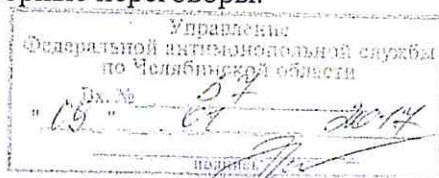 рные переговоры.
Управление
Федеральной антимонопольной службы
по Челябинской области
Вх. № 27
" " 01 2017
подпись